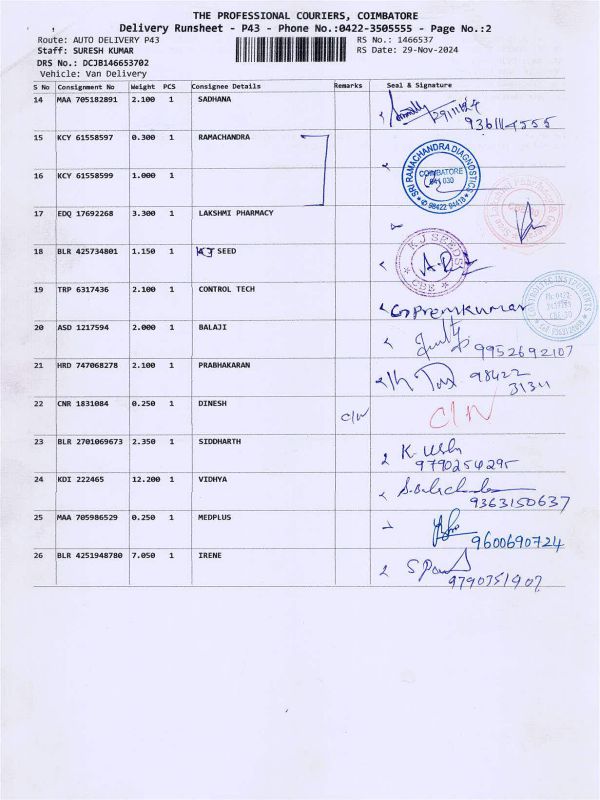 THE PROFESSIONAL COURIERS, COIMBATORE
Delivery Runsheet - P43 - Phone No.:0422-3505555 - Page No.:2
Route: AUTO DELIVERY P43 RS No.: 1466537
Staff: SURESH KUMAR RS Date: 29-Nov-2024
DRS No.: DCJB146653702
Vehicle: Van Delivery
S No Consignment No Weight PCS Consignee Details Remarks Seal & Signature
14 MAA 705182891 2.100 1 SADHANA
29/11/24
15 KCY 61558597 0.300 1 RAMACHANDRA
SRI RAMACHANDRA DIAGNOSTICS
COIMBATORE
641 030
98422 94418
16 KCY 61558599 1.000 1
17 EDQ 17692268 3.300 1 LAKSHMI PHARMACY
18 BLR 425734801 1.150 1 KJ SEED
KJ SEEDS
CBE
19 TRP 6317436 2.100 1 CONTROL TECH
G Premkumar
20 ASD 1217594 2.000 1 BALAJI
9952692107
21 HRD 747068278 2.100 1 PRABHAKARAN
98422
31311
22 CNR 1831084 0.250 1 DINESH C/N C/N
23 BLR 2701069673 2.350 1 SIDDHARTH
K. Usha
9790254295
24 KDI 222465 12.200 1 VIDHYA
9363150637
25 MAA 705986529 0.250 1 MEDPLUS
9600690724
26 BLR 4251948780 7.050 1 IRENE
9790351907